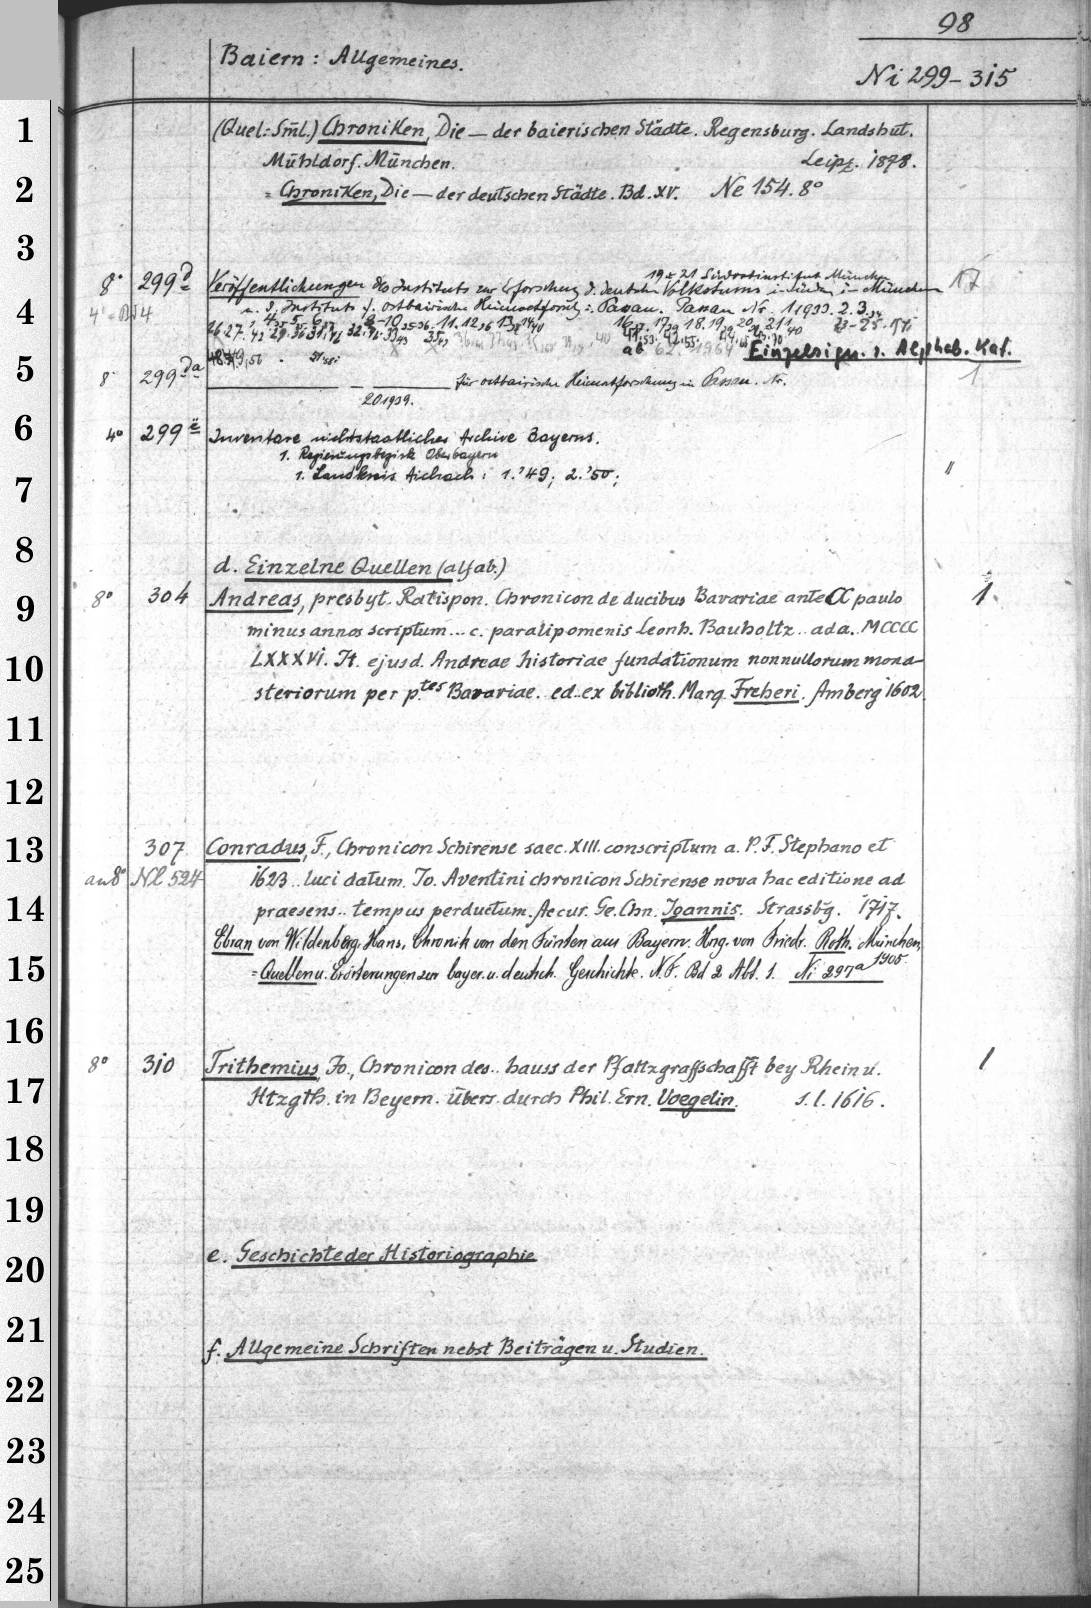 98
Baiern: Allgemeines.
Ni 299-315
1
(Quel.-Sml.) Chroniken, Die — der baierischen Städte. Regensburg. Landshut.
Mühldorf. München. Leipz. 1878.
2
= Chroniken, Die — der deutschen Städte. Bd. XV. Ne 154. 8°
3
19 u. 21 Südostinstitut München
8° 299 d Veröffentlichungen des Instituts zur Erforschung d. deutschen Volkstums im Süden in München 17
4
u. d. Instituts f. ostbairische Heimatforsch. in Passau. Passau Nr. 1 1933. 2. 3
ab 62. 1964 Einzelsign. s. Alphab. Kat.
5
8° 299 da — für ostbairische Heimatforschung in Passau. Nr. 1
20 1939.
6
4° 299 e Inventare nichtstaatlicher Archive Bayerns.
1. Regierungsbezirk Oberbayern
1. Landkreis Aichach: 1. '49; 2. '50; "
7
8
d. Einzelne Quellen (alfab.)
9
8° 304 Andreas, presbyt. Ratispon. Chronicon de ducibus Bavariae ante CC paulo 1.
minus annos scriptum... c. paralipomenis Leonh. Bauholtz.. ad a. MCCCC
10
LXXXVI. It. ejusd. Andreae historiae fundationum nonnullorum mona-
steriorum per p.tes Bavariae. ed. ex biblioth. Marq. Freheri. Amberg 1602.
11
12
13
307 Conradus, F., Chronicon Schirense saec. XIII. conscriptum a. P. F. Stephano et
an 8° Nl 524 1623.. luci datum. Jo. Aventini chronicon Schirense nova hac editione ad
14
praesens.. tempus perductum. Accur. Ge. Chn. Joannis. Strassbg. 1717.
Ebran von Wildenberg, Hans, Chronik von den Fürsten aus Bayern. Hrsg. von Friedr. Roth. München, 1905.
15
= Quellen u. Erörterungen zur bayer. u. deutsch. Geschichte. N. F. Bd 2 Abt. 1. Ni 297 a
16
8° 310 Trithemius, Jo., Chronicon des.. hauss der Pfaltzgraffschafft bey Rhein u. 1
17
Htzgth. in Beyern. übers. durch Phil. Ern. Voegelin. s. l. 1616.
18
19
e. Geschichte der Historiographie
20
21
f. Allgemeine Schriften nebst Beiträgen u. Studien.
22
23
24
25